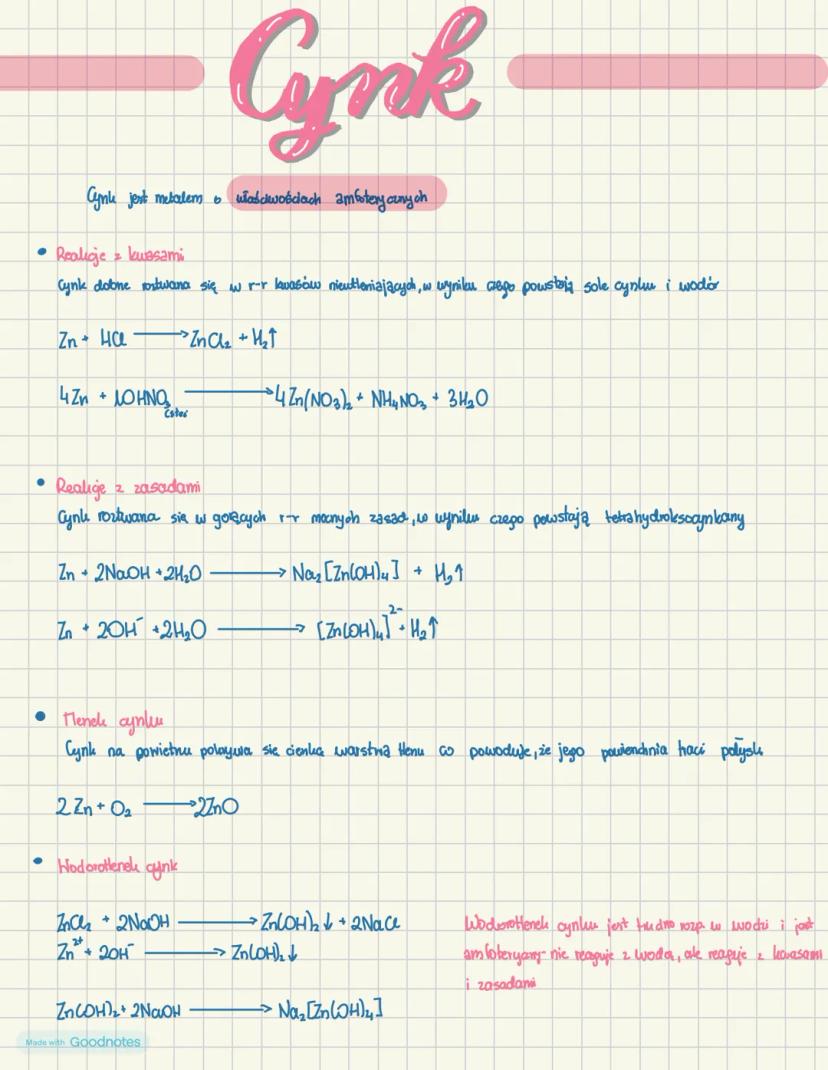 Cynk
Cynk jest metalem o właściwościach amfoterycznych
• Reakcje z kwasami
Cynk dobrze roztwarza się w r-r kwasów nieutleniających, w wyniku czego powstają sole cynku i wodór
Zn + HCl → ZnCl₂ + H₂↑
4Zn + 10HNO₃ → 4Zn(NO₃)₂ + NH₄NO₃ + 3H₂O
• Reakcje z zasadami
Cynk roztwarza się w gorących r-r mocnych zasad, w wyniku czego powstają tetrahydroksocynkany
Zn + 2NaOH + 2H₂O → Na₂[Zn(OH)₄] + H₂↑
Zn + 2OH⁻ + 2H₂O → [Zn(OH)₄]²⁻ + H₂↑
• Tlenek cynku
Cynk na powietrzu pokrywa się cienką warstwą tlenu co powoduje, że jego powierzchnia traci połysk
2Zn + O₂ → 2ZnO
• Wodorotlenek cynk
ZnCl₂ + 2NaOH → Zn(OH)₂↓ + 2NaCl
Zn²⁺ + 2OH⁻ → Zn(OH)₂↓
Zn(OH)₂ + 2NaOH → Na₂[Zn(OH)₄]
Wodorotlenek cynku jest trudno rozp. w wodzi i jest
amfoteryczny - nie reaguje z wodą, ale reaguje z kwasami
i zasadami
Made with Goodnotes